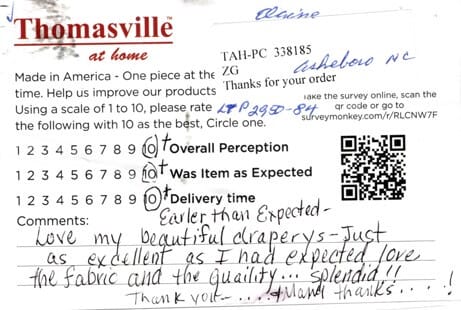 Elaine
Thomasville™
at home
TAH-PC 338185
ZG
Thanks for your order
Asheboro NC
Made in America - One piece at the
time. Help us improve our products
Using a scale of 1 to 10, please rate
the following with 10 as the best, Circle one.
LTP 2950-84
Take the survey online, scan the
qr code or go to
surveymonkey.com/r/RLCNW7F
1 2 3 4 5 6 7 8 9 10+ Overall Perception
1 2 3 4 5 6 7 8 9 10+ Was Item as Expected
1 2 3 4 5 6 7 8 9 10+ Delivery time
Comments:
Earler than Expected-
Love my beautiful draperys-Just
as excellent as I had expected love
the fabric and the quaility... splendid!!
Thank you- .... + Many thanks....!